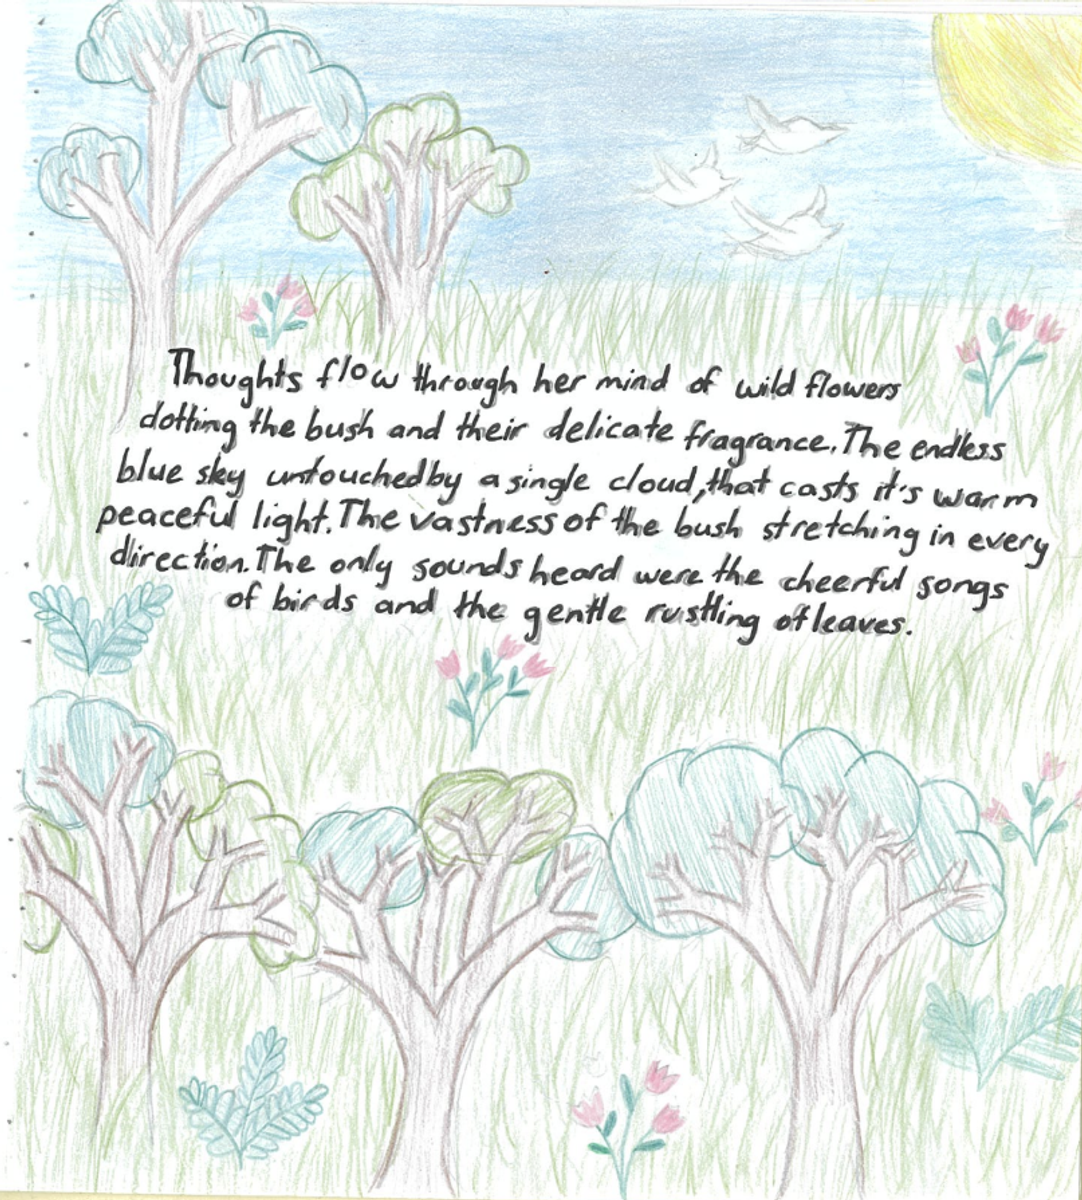 Thoughts flow through her mind of wild flowers
dotting the bush and their delicate fragrance. The endless
blue sky untouched by a single cloud, that casts it's warm
peaceful light. The vastness of the bush stretching in every
direction. The only sounds heard were the cheerful songs
of birds and the gentle rustling of leaves.